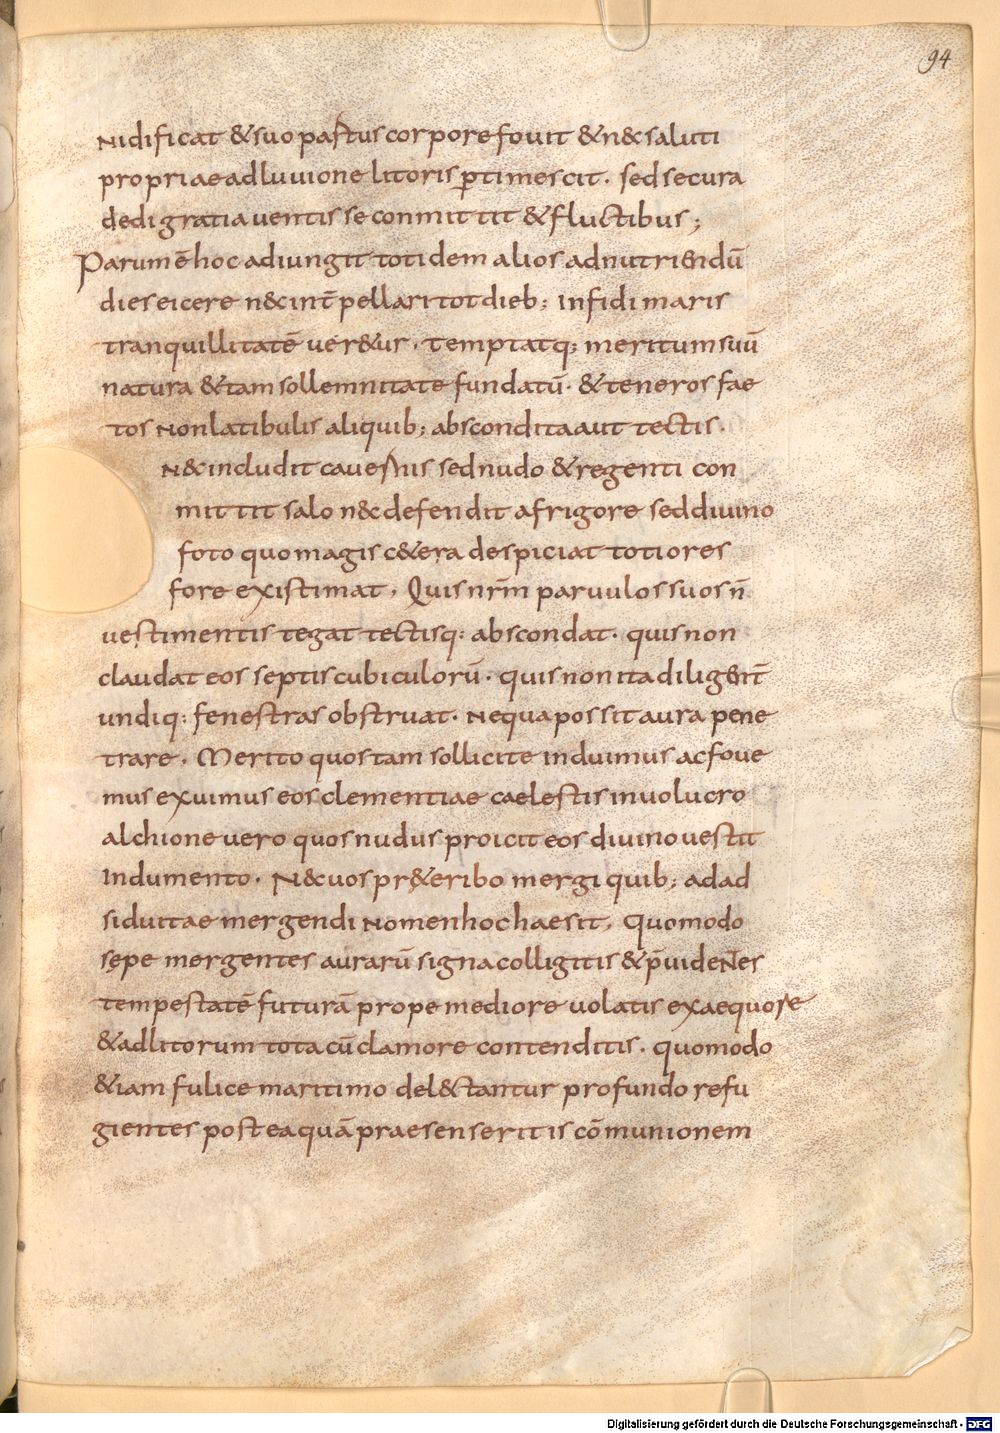 94
nidificat &suo partus corpore fouit &n&saluti
propriae adluuione litoris ptimescit · sed secura
dedi gratia uentis se conmittit &fluctibus ;
Parum ē hoc adiungit totidem alios adnutriendū
dies eicere n&int̄pellari tot dieb; infidi maris
tranquillitatē uer&ur · temptatq; meritum suū
natura &tam sollemnitate fundatū · &teneros fae
tos non latibulis aliquib; abscondita aut tectis ·
n&includit cauernis sed nudo &regenti con
mittit salo n&defendit a frigore sed diuino
foto quo magis c&era despiciat totiores
fore existimat , Quis nr̄m paruulos suos n̄
uestimentis tegat tectisq; abscondat · quis non
claudat eos septis cubiculorū · quis non ita diligent̄
undiq; fenestras obstruat · ne qua possit aura pene
trare , Merito quos tam sollicite induimus ac foue
mus exuimus eos clementiae caelestis inuolucro
alchione uero quos nudus proicit eos diuino uestit
indumento · N&uos pr&eribo mergi quib; adad
siduitae mergendi nomen hoc haesit , Quomodo
sępe mergentes aurarū signa colligitis &p̄uidentes
tempestatē futurā prope mediore uolatis ex aequore
&adlitorum tota cū clamore contenditis · quomodo
&iam fulice maritimo del&tantur profundo refu
gientes postea quā praesenseritis cōmunionem
Digitalisierung gefördert durch die Deutsche Forschungsgemeinschaft - DFG